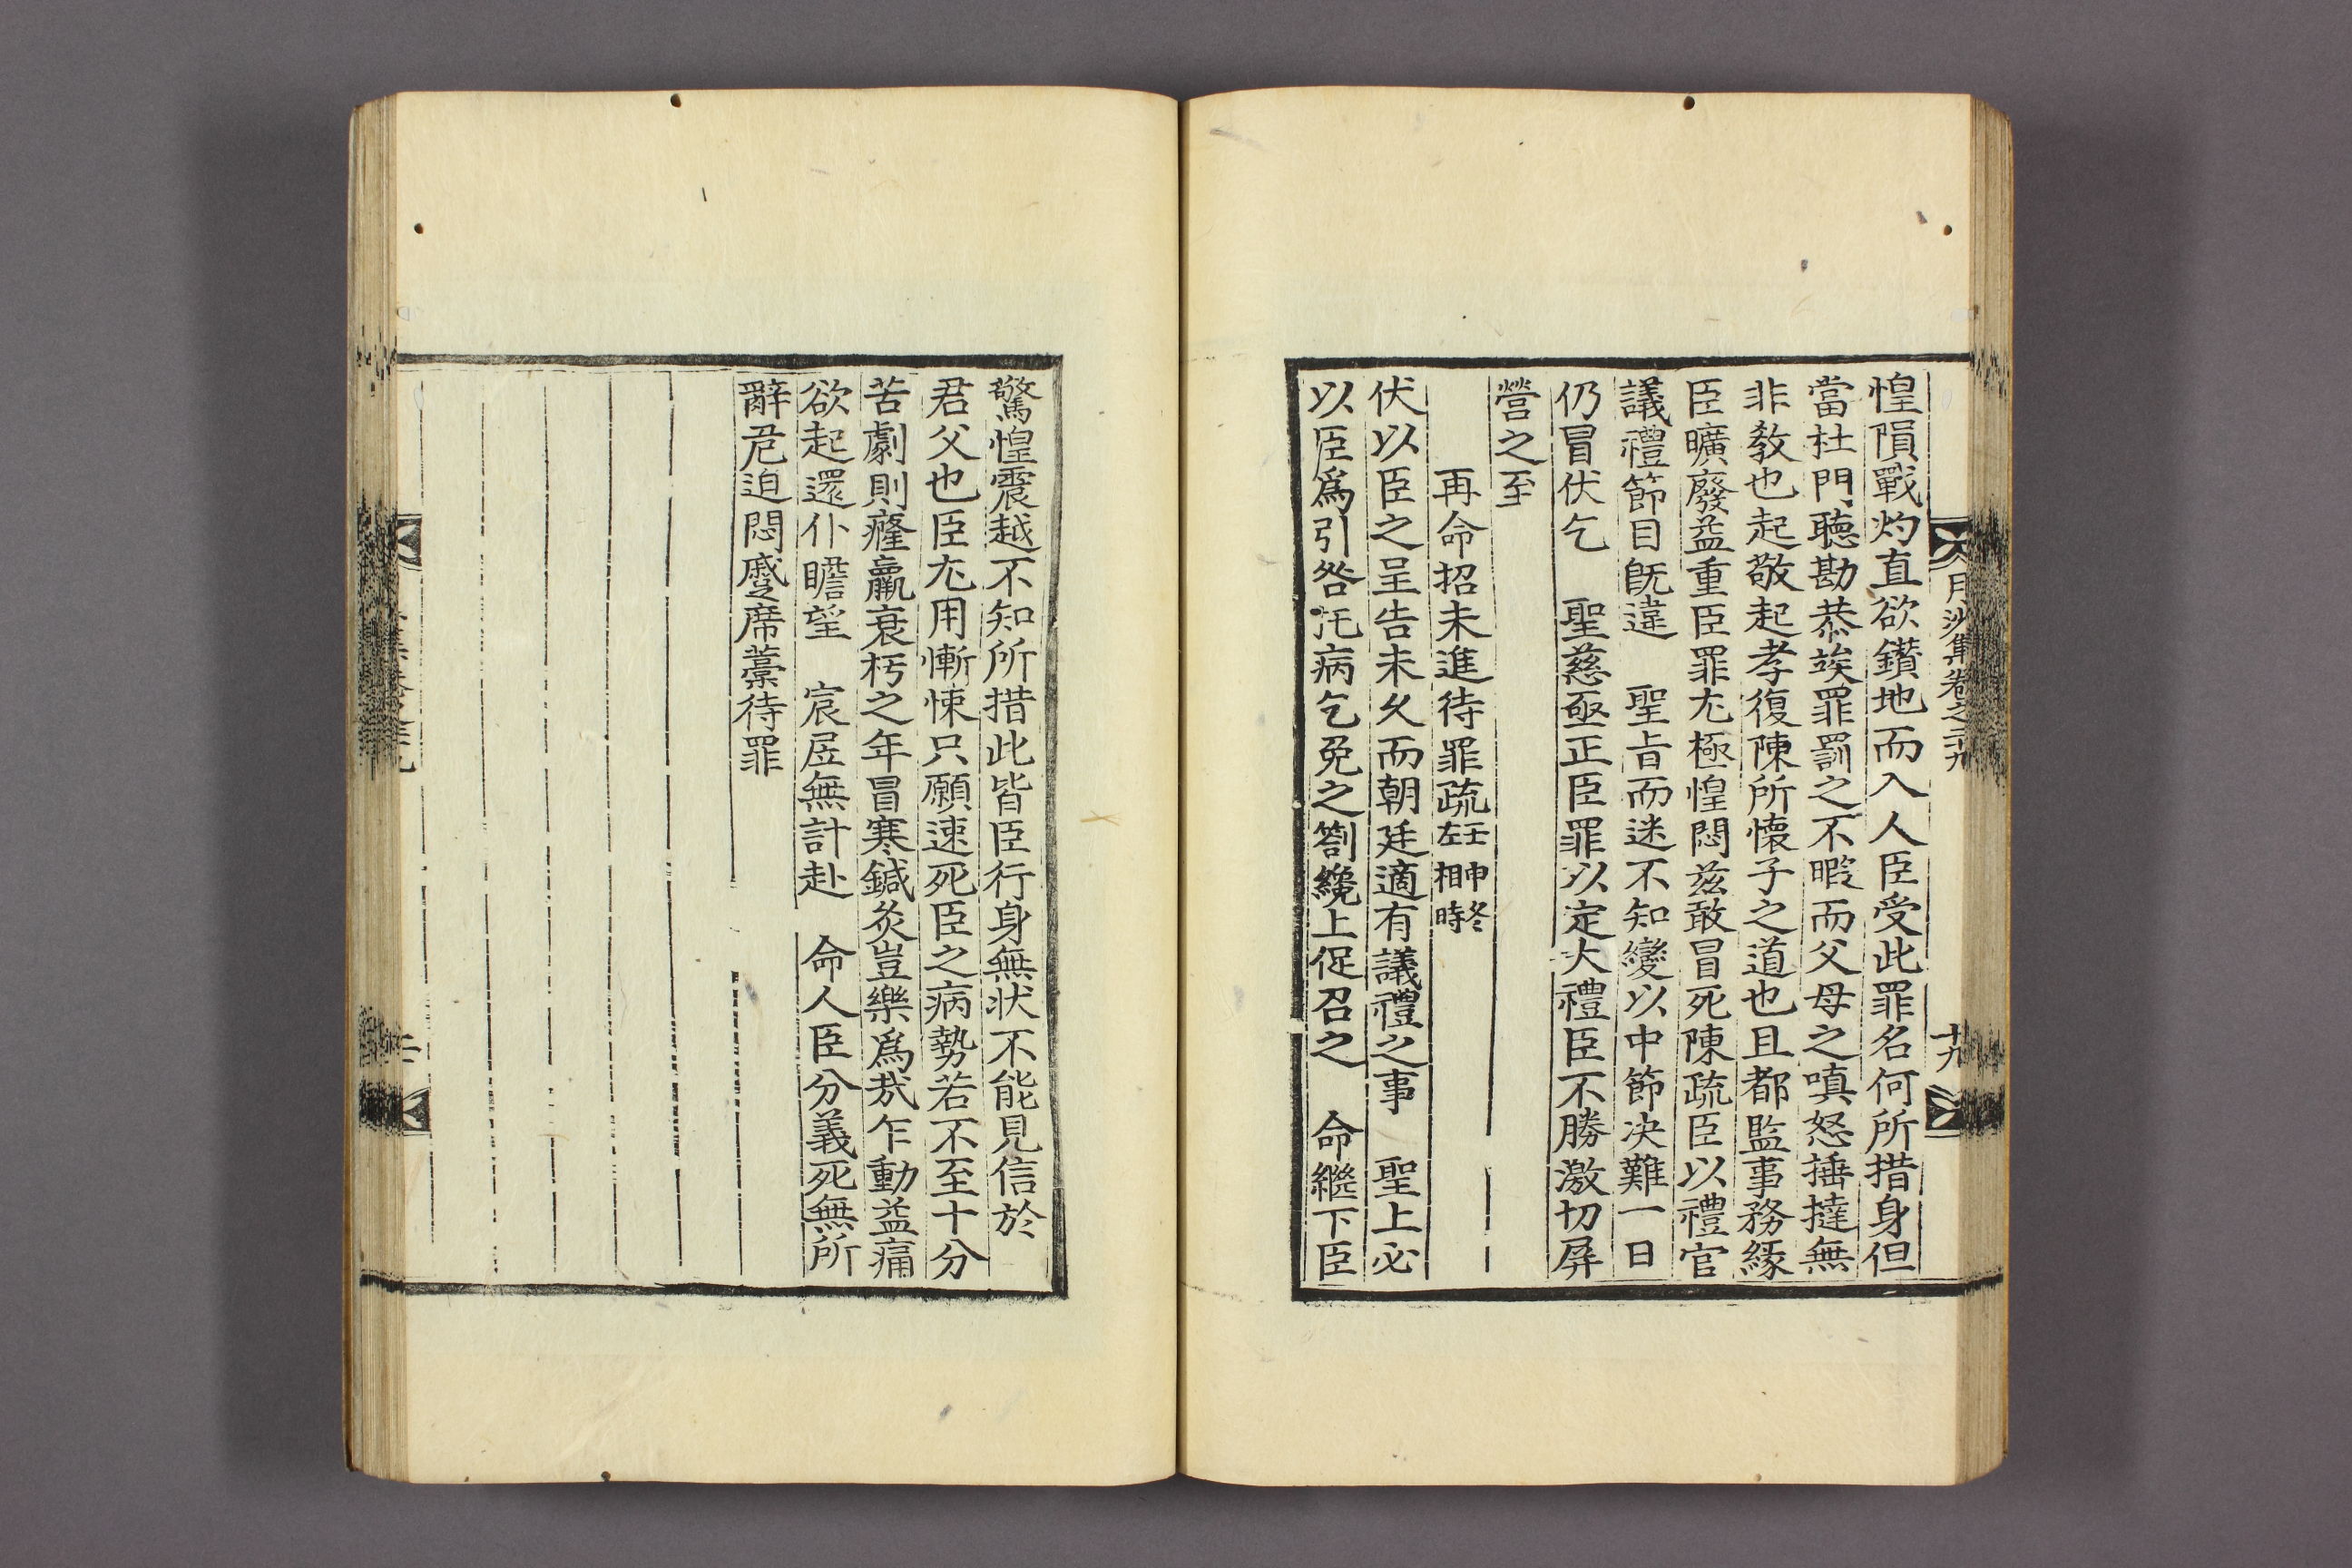 月沙集卷之二十九
十九
惶隕戰灼直欲鑽地而入人臣受此罪名何所措身但
當杜門聽勘恭竢罪罰之不暇而父母之嗔怒捶撻無
非教也起敬起孝復陳所懷子之道也且都監事務緣
臣曠廢益重臣罪尤極惶悶玆敢冒死陳疏臣以禮官
議禮節目旣違 聖旨而迷不知變以中節決難一日
仍冒伏乞 聖慈亟正臣罪以定大禮臣不勝激切屛
營之至
再命招未進待罪疏壬申冬左相時
伏以臣之呈告未久而朝廷適有議禮之事 聖上必
以臣爲引咎托病乞免之箚纔上促召之 命繼下臣
驚惶震越不知所措此皆臣行身無狀不能見信於
君父也臣尤用慚悚只願速死臣之病勢若不至十分
苦劇則癃羸衰朽之年冒寒鍼灸豈樂爲哉乍動益痛
欲起還仆瞻望 宸居無計赴 命人臣分義死無所
辭危迫悶蹙席藁待罪